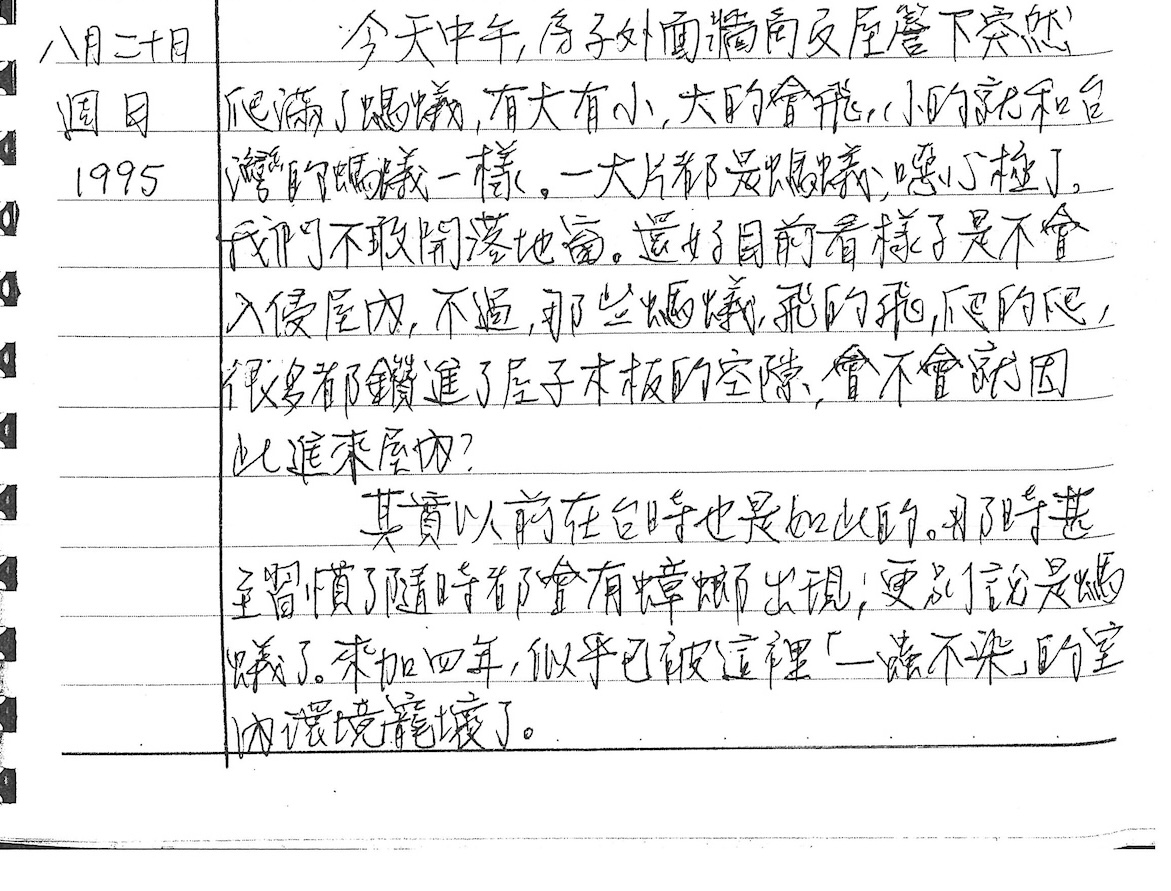 八月二十日
週日
1995
今天中午,房子外面牆角及屋簷下突然
爬滿了螞蟻,有大有小,大的會飛,小的就和台
灣的螞蟻一樣。一大片都是螞蟻,噁心極了。
我們不敢開落地窗。還好目前看樣子是不會
入侵屋內,不過,那些螞蟻,飛的飛,爬的爬,
很多都鑽進了屋子木板的空隙,會不會就因
此進來屋內?
其實以前在台時也是如此的。那時甚
至習慣了隨時都會有蟑螂出現;更別說是螞
蟻了。來加四年,似乎已被這裡「一蟲不染」的室
內環境寵壞了。